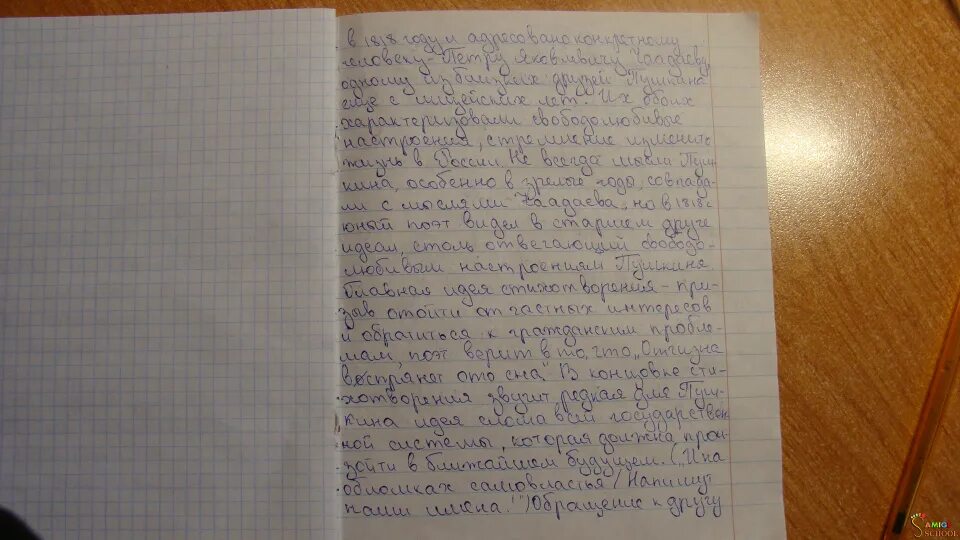 в 1818 году и адресовано конкретному
человеку - Петру Яковлевичу Чаадаеву,
одному из близких друзей Пушкина
еще с лицейских лет. Их обоих
характеризовали свободолюбивые
настроения, стремление изменить
жизнь в России. Не всегда мысли Пуш-
кина, особенно в зрелые годы, совпада-
ли с мыслями Чаадаева, но в 1818г
юный поэт видел в старшем друге
идеал, столь отвечающий свободо-
любивым настроениям Пушкина.
Главная идея стихотворения - при-
зыв отойти от частных интересов
и обратиться к гражданским пробле-
мам, поэт верит в то, что „Отчизна
воспрянет ото сна". В концовке сти-
хотворения звучит редкая для Пуш-
кина идея слома всей государствен-
ной системы, которая должна прои-
зойти в ближайшем будущем. („И на
обломках самовластья / Напишут
наши имена!") Обращение к другу
AMIGO
SCHOOL